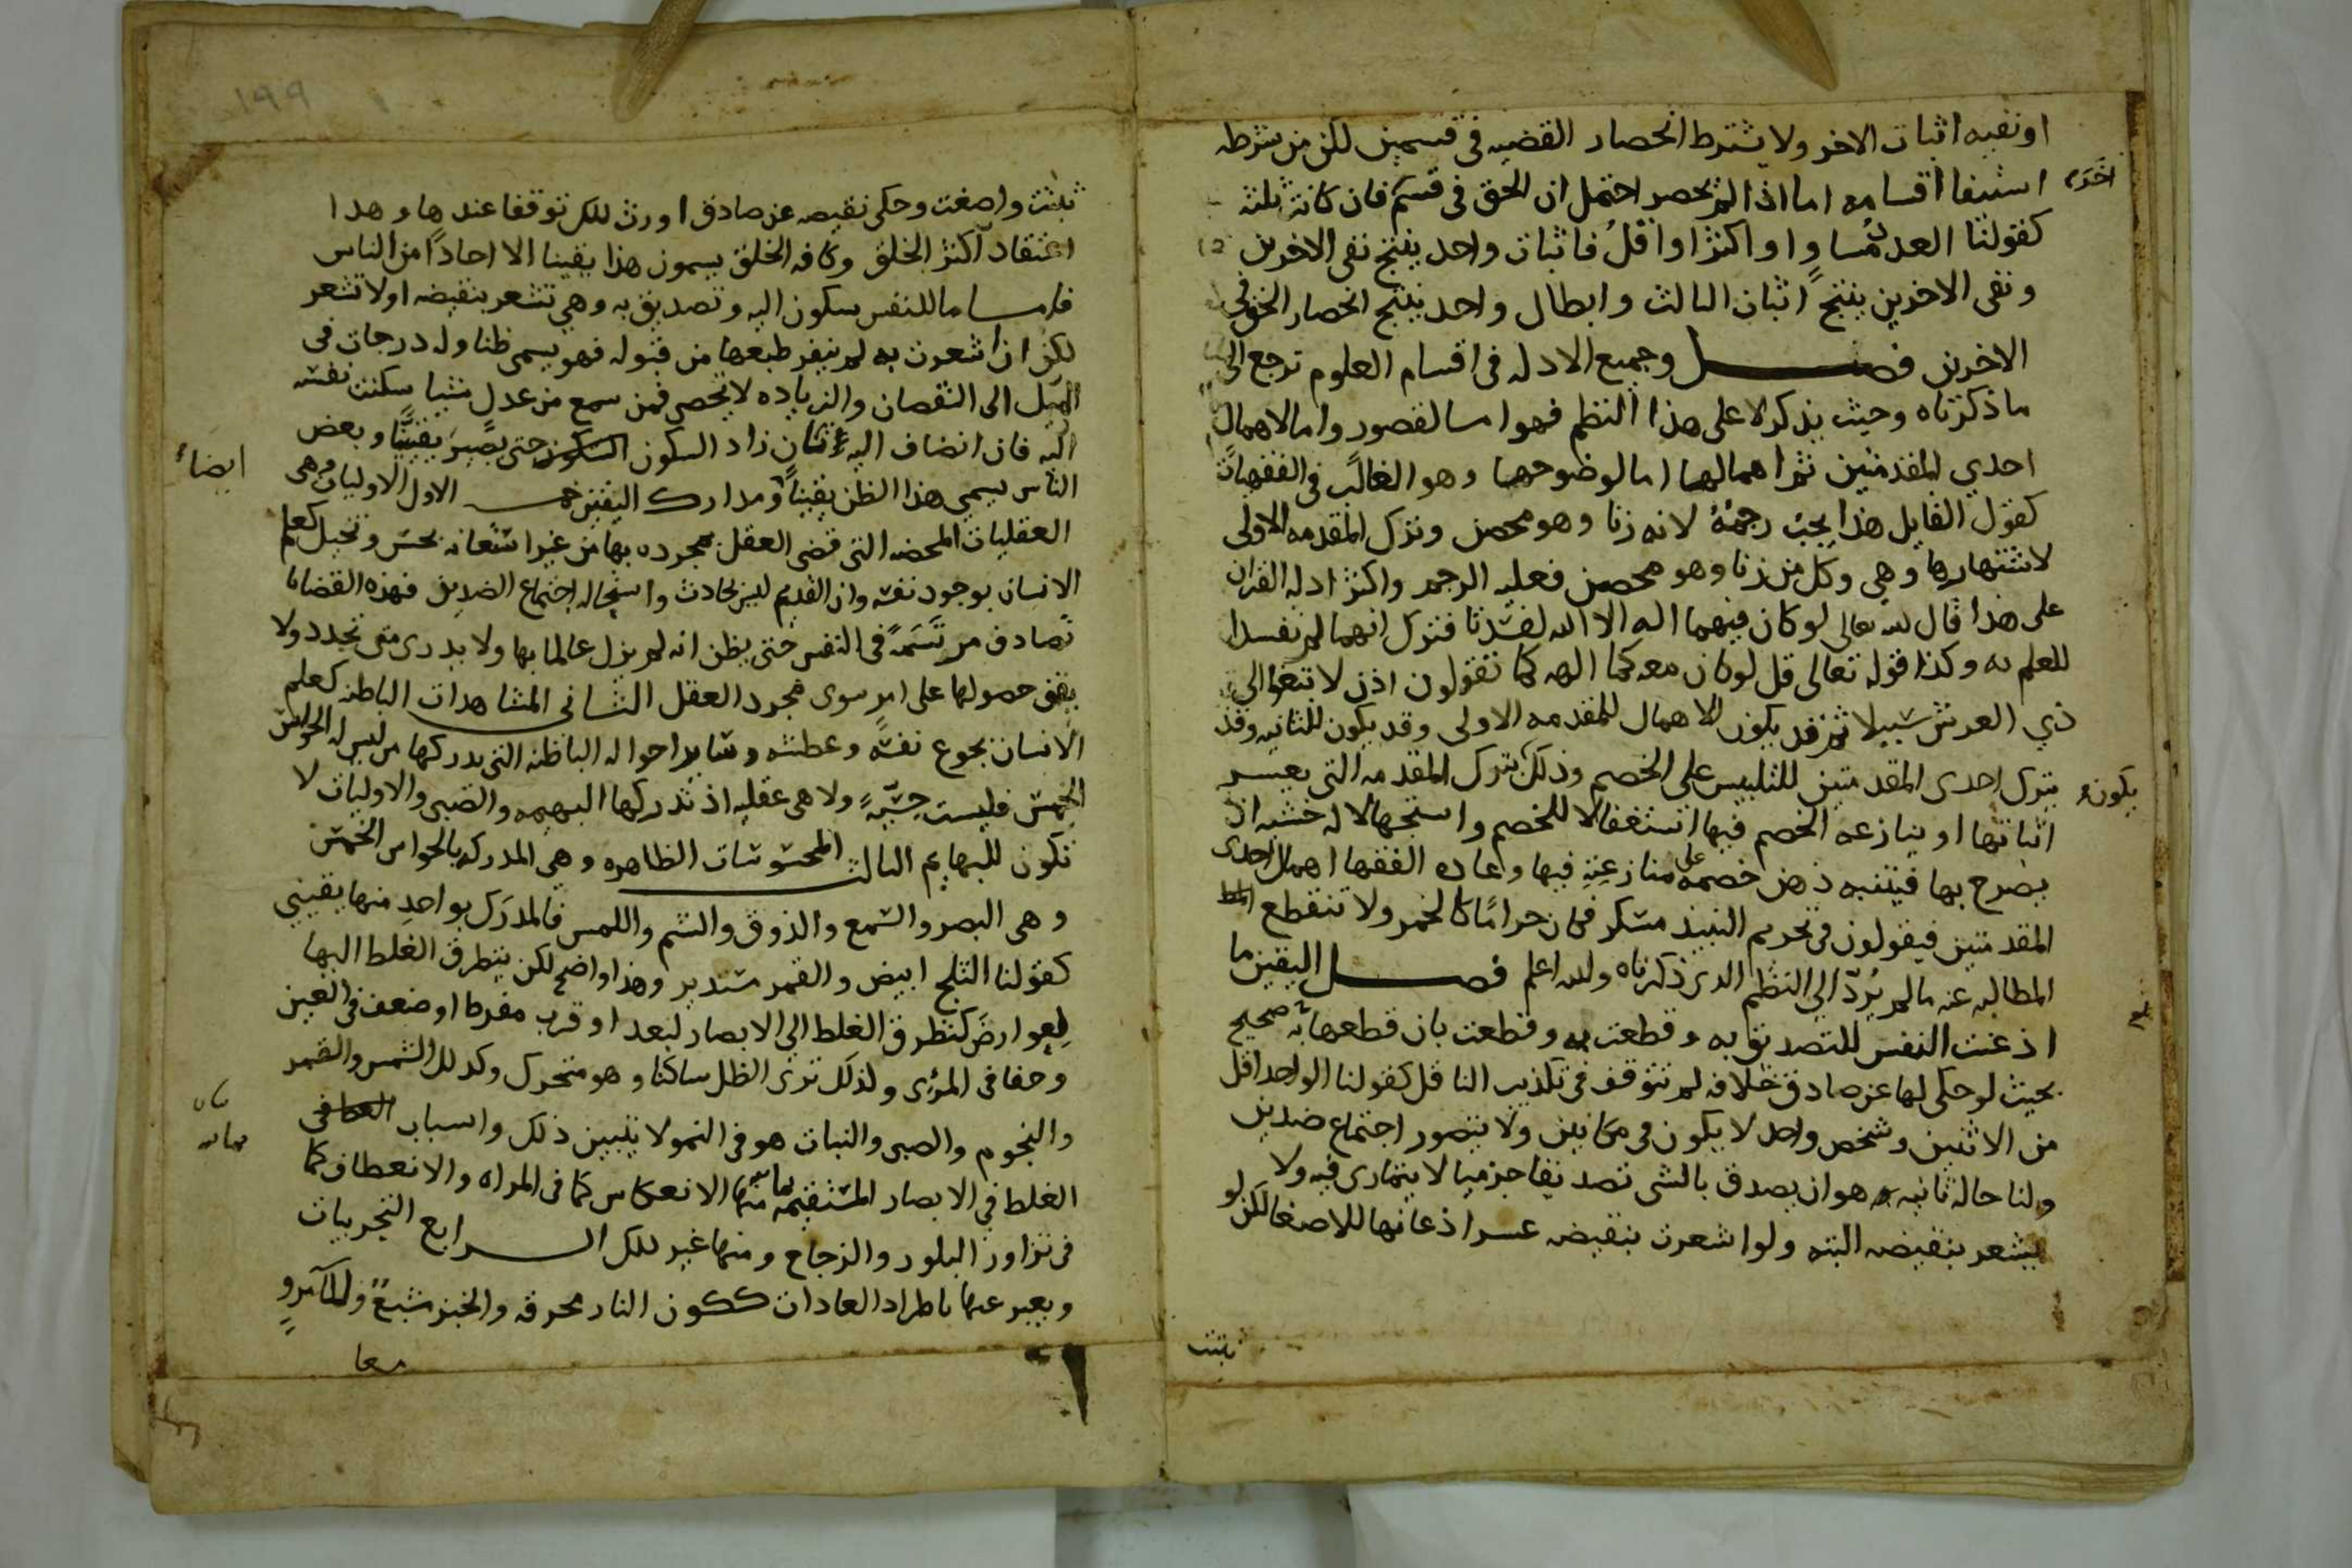 او نفيه اثبات الاخر ولا يشترط انحصار القضيه في قسمين لكن من شرطه
استيفا اقسامه اما اذا لم يحصر احتمل ان الحق في قسم فان كانت ثلثه
كقولنا العدد مساوٍ او اكثر او اقلُ فاثبات واحد ينتج نفي الاخرين
ونفي الاخرين ينتج اثبات الثالث وابطال واحد ينتج انحصار الحق في
الاخرين فصل وجميع الادله في اقسام العلوم ترجع الى
ما ذكرناه وحيث يذكر لا على هذا النظم فهو اما لقصور واما لاهمال
احدي المقدمتين ثم اهمالها اما لوضوحها وهو الغالب في الفقهيات
كقول القايل هذا يجب رجمُهُ لانه زنا وهو محصن وترك المقدمه الاولى
لاشتهارها وهي وكل من زنا وهو محصن فعليه الرجم واكثر ادله القران
على هذا قال الله تعالى لو كان فيهما اله الا الله لفسدتا فترك انهما لم تفسدا
للعلم به وكذا قوله تعالى قل لو كان معه كما الهه كما تقولون اذن لا تبتغوا الى
ذي العرش سبيلا ثم قد يكون الاهمال للمقدمه الاولى وقد يكون للثانيه وقد
يكون
بترك احدى المقدمتين للتلبيس على الخصم وذلك بترك المقدمه التي يعسر
اثباتها او ينازعه الخصم فيها استغفالا للخصم واستجهالا له خشيه ان
يصرح بها فيتنبه ذهن خصمه على منازعته فيها وعاده الفقها اهمال احدى
المقدمتين فيقولون في تحريم النبيذ مسكر فكان حرامًا كالخمر ولا تنقطع
المطالبه عنه ما لم يُردّ الى النظم الذي ذكرناه والله اعلم فصل اليقين ما
اذعنت النفس للتصديق به وقطعت به وقطعت بان قطعها به صحيح
بحيث لو حكى لها عن صادق خلافه لم تتوقف في تكذيب الناقل كقولنا الواحد اقل
من الاثنين وشخص واحد لا يكون في مكانين ولا يتصور اجتماع ضدين
ولنا حاله ثانيه هو ان يصدق بالشي تصديقا جزميا لا يتمارى فيه ولا
يشعر بنقيضه البته ولو اشعرت بنقيضه عسر اذعانها للاصغا لكن لو
ثبتت
١٩٩
ثبتت واصغت وحكى نقيضه عن صادق اورث ذلك توقفا عندها وهذا
اعتقاد اكثر الخلق وكافه الخلق يسمون هذا يقينا الا احادًا من الناس
فاما ما للنفس سكون اليه وتصديق به وهي تشعر بنقيضه او لا تشعر
لكن ان اشعرت به لم ينفر طبعها من قبوله فهو يسمى ظنا وله درجات في
الميل الى النقصان والزياده لا تحصى فمن سمع من عدل شيا سكنت نفسه
اليه فان انضاف اليه ثانٍ زاد السكون حتى يصير يقينًا وبعض
الناس يسمي هذا الظن يقينًا ايضا ومدارك اليقين خمسه الاول الاوليات وهي
العقليات المحضه التي قضى العقل بمجرده بها من غير استعانه بحس وتخيل كعلم
الانسان بوجود نفسه وان القديم ليس بحادث واستحاله اجتماع الضدين فهذه القضايا
تصادف مرتسمةً في النفس حتى يظن انه لم يزل عالما بها ولا يدري متى تجدد ولا
يقف حصولها على امرٍ سوى مجرد العقل الثاني المشاهدات الباطنه كعلم
الانسان بجوع نفسه وعطشه وساير احواله الباطنه التي يدركها من ليس له الحواس
الخمس فليست حسيّهً ولا هي عقليه اذ تدركها البهيمه والصبي والاوليات لا
تكون للبهايم الثالث المحسوسات الظاهره وهي المدركه بالحواس الخمس
وهي البصر والسمع والذوق والشم واللمس فالمدرَك بواحدٍ منها يقيني
كقولنا الثلج ابيض والقمر مستدير وهذا واضح لكن يتطرق الغلط اليها
لعوارضَ كتطرق الغلط الى الابصار لبعد او قرب مفرط او ضعف في العين
وخفا في المرئى ولذلك ترى الظل ساكنا وهو متحرك وكذلك الشمس والقمر
والنجوم والصبي والنبات هو في النمو لا يتبين ذلك واسباب
الغلط في الابصار المستقيمه منها الانعكاس كما في المراه والانعطاف كما
في تزاور البلور والزجاج ومنها غير ذلك الرابع التجريبات
ويعبر عنها باطراد العادات ككون النار محرقه والخبز مشبعً والما مروٍ